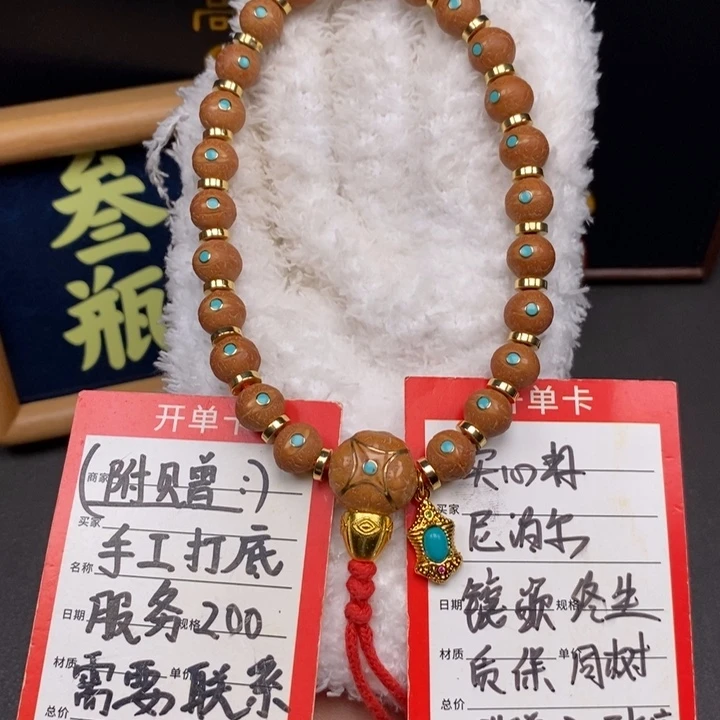 叁瓶
开单卡
商家
(附贝曾:)
买家
名称
手工打底
日期
服务200
规格
材质
需要联系
单价
总价
开单卡
实心籽
买家
尼泊尔
日期
镶嵌终生
规格
材质
质保同树
单价
总价